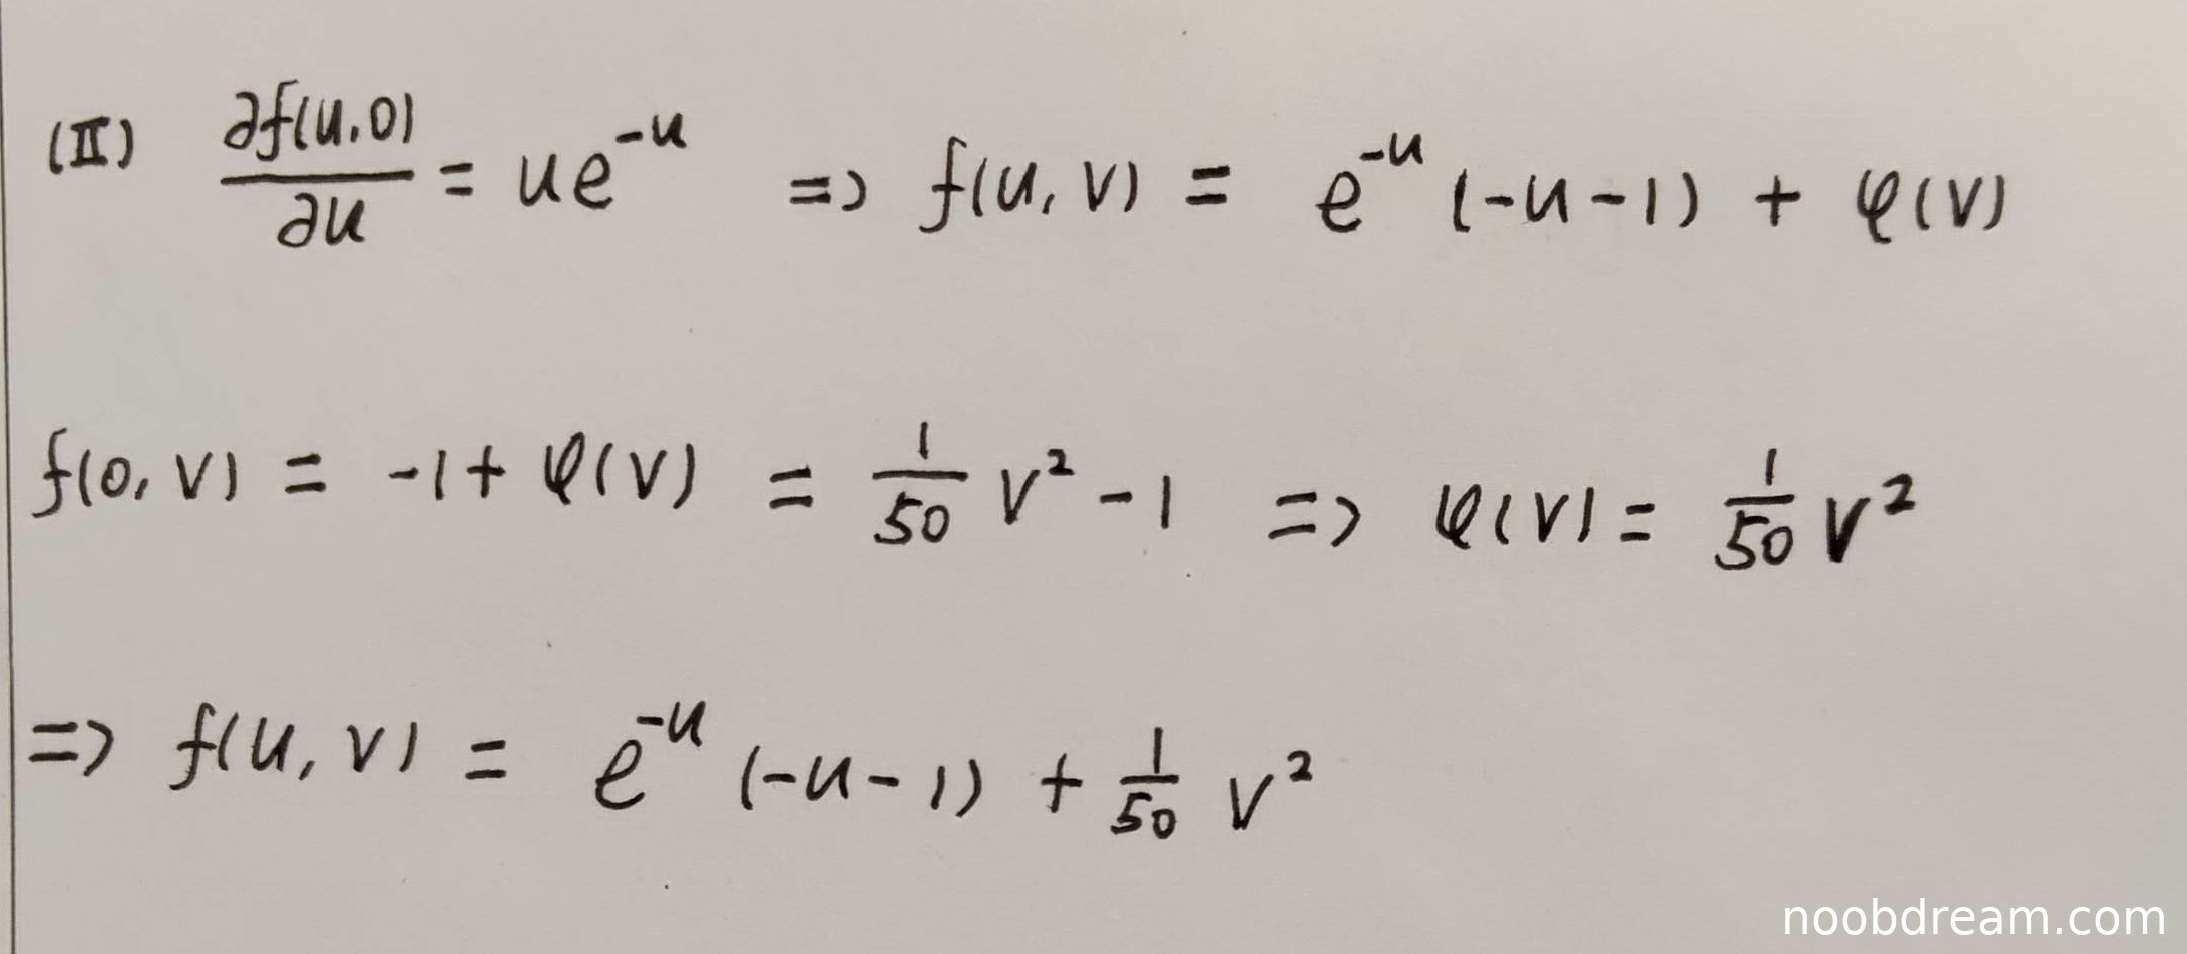 (Ⅱ) ∂f(u,0)/∂u = ue^{-u} => f(u, v) = e^{-u} (-u-1) + φ(v)
f(0, v) = -1+ φ(v) = 1/50 v² - 1 => φ(v) = 1/50 v²
=> f(u, v) = e^{-u} (-u-1) + 1/50 v²
noobdream.com